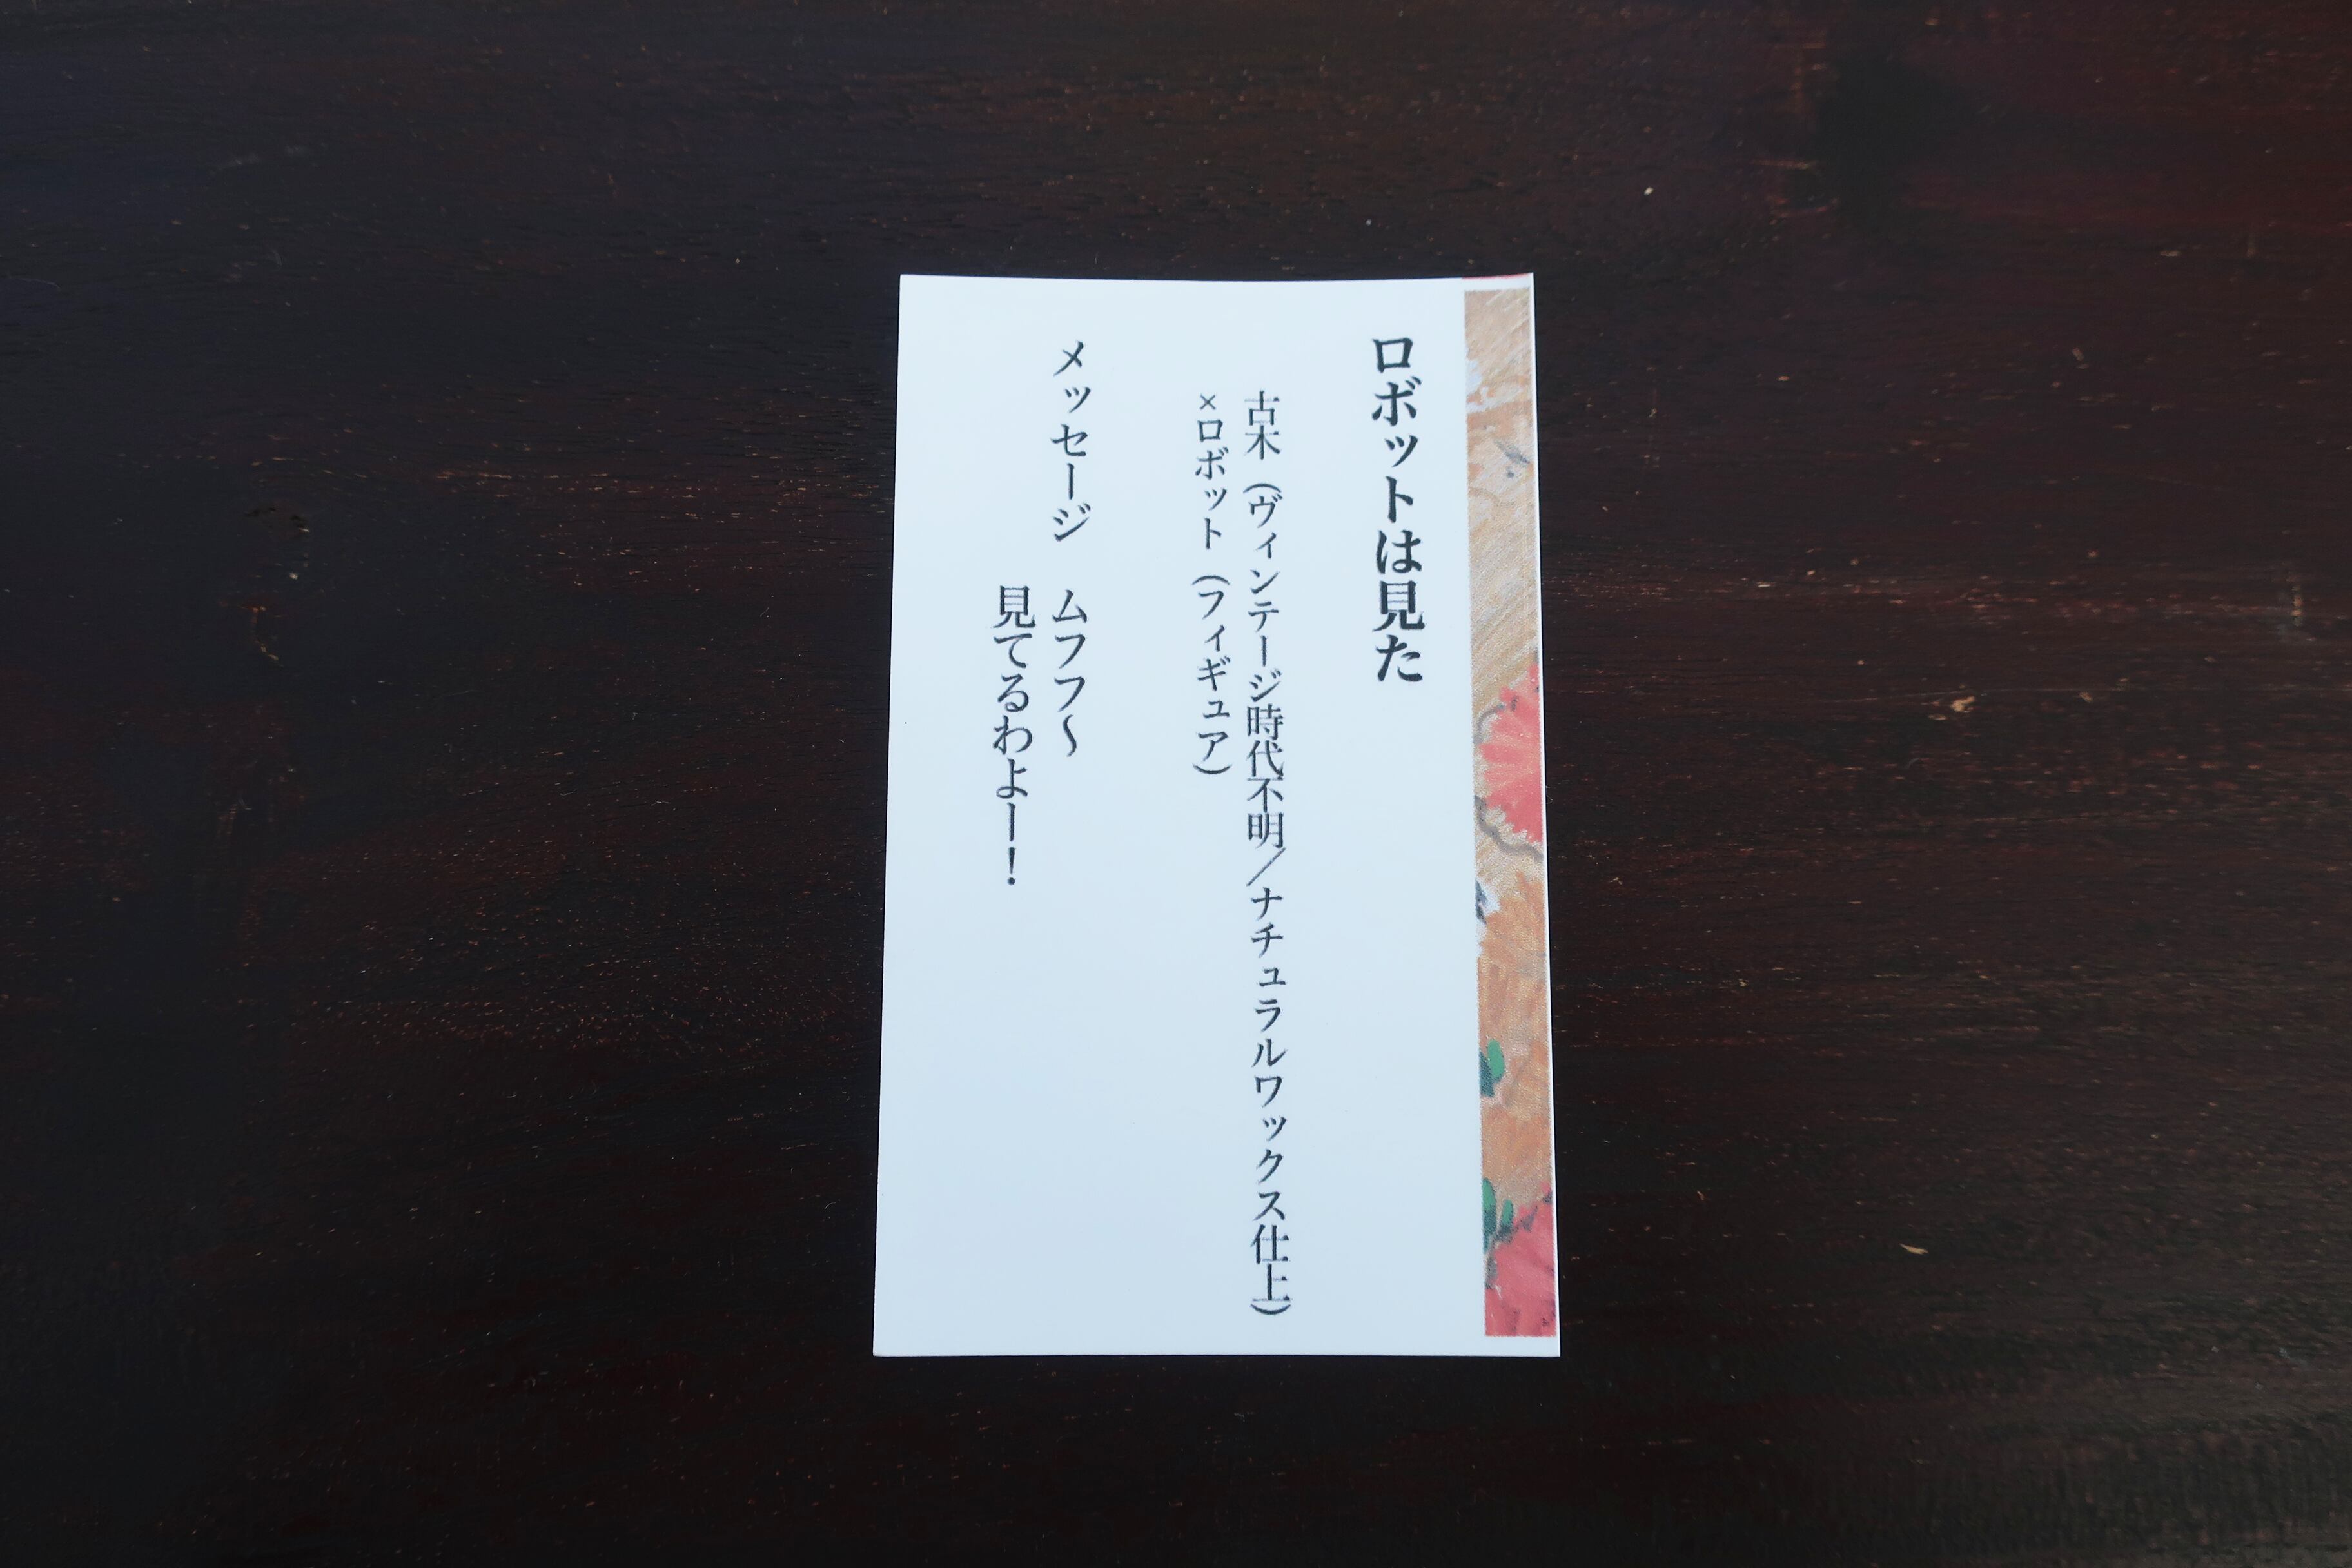 ロボットは見た
古木（ヴィンテージ時代不明／ナチュラルワックス仕上）
×ロボット（フィギュア）
メッセージ　ムフフ～
見てるわよー！